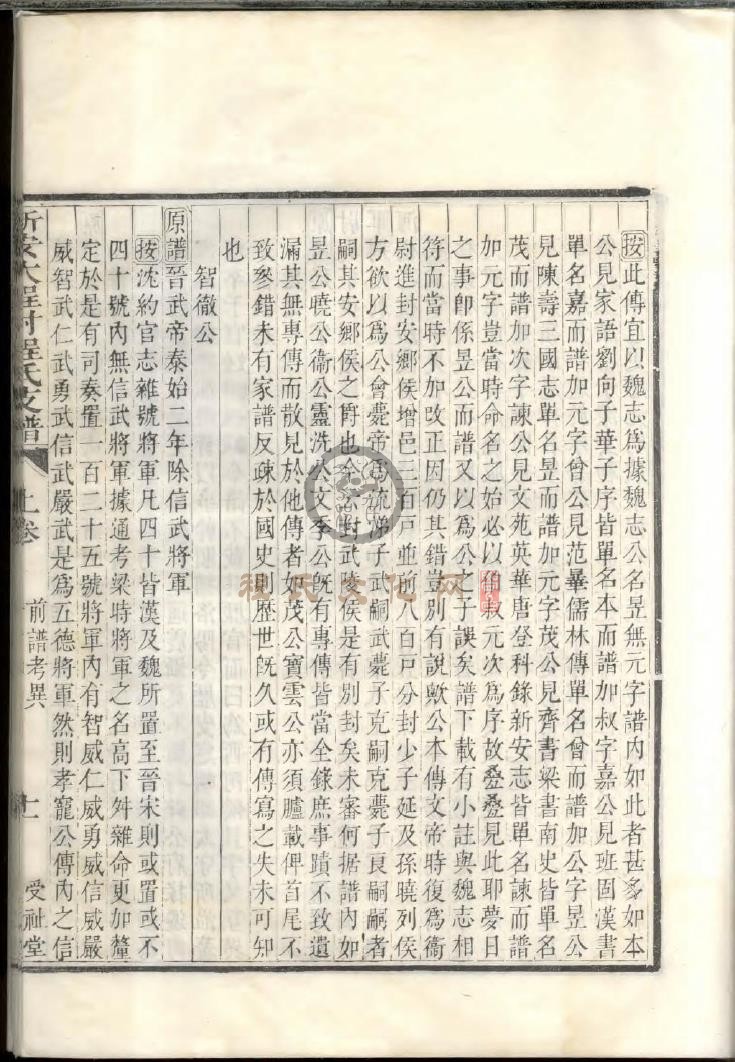 按此傳宜以魏志爲據魏志公名昱無元字譜內如此者甚多如本
公見家語劉向子華子序皆單名本而譜加叔字嘉公見班固漢書
單名嘉而譜加元字曾公見范曄儒林傳單名曾而譜加公字昱公
見陳壽三國志單名昱而譜加元字茂公見齊書梁書南史皆單名
茂而譜加次字諫公見文苑英華唐登科錄新安志皆單名諫而譜
加元字豈當時命名之始必以伯叔元次爲序故叠叠見此耶夢日
之事卽係昱公而譜又以爲公之子誤矣譜下載有小註與魏志相
符而當時不加改正因仍其錯豈別有說歟公本傳文帝時復爲衞
尉進封安鄉侯增邑三百戶並前八百戶分封少子延及孫曉列侯
方欲以爲公會薨帝爲流涕子武嗣武薨子克嗣克薨子良嗣嗣者
嗣其安鄉侯之爵也 封武陵侯是有別封矣未審何据譜內如
昱公曉公衞公靈洗公文季公旣有專傳皆當全錄庶事蹟不致遺
漏其無專傳而散見於他傳者如茂公寶雲公亦須臚載俾首尾不
致參錯未有家譜反疎於國史則歷世旣久或有傳寫之失未可知
也
智徹公
原譜晉武帝泰始二年除信武將軍
按沈約官志雜號將軍凡四十皆漢及魏所置至晉宋則或置或不
四十號內無信武將軍據通考梁時將軍之名高下舛雜命更加釐
定於是有司奏置一百二十五號將軍內有智威仁威勇威信威嚴
威智武仁武勇武信武嚴武是爲五德將軍然則孝寵公傳內之信
新安大程村程氏支譜 上卷 前譜考異 十一 受祉堂
程氏文化网